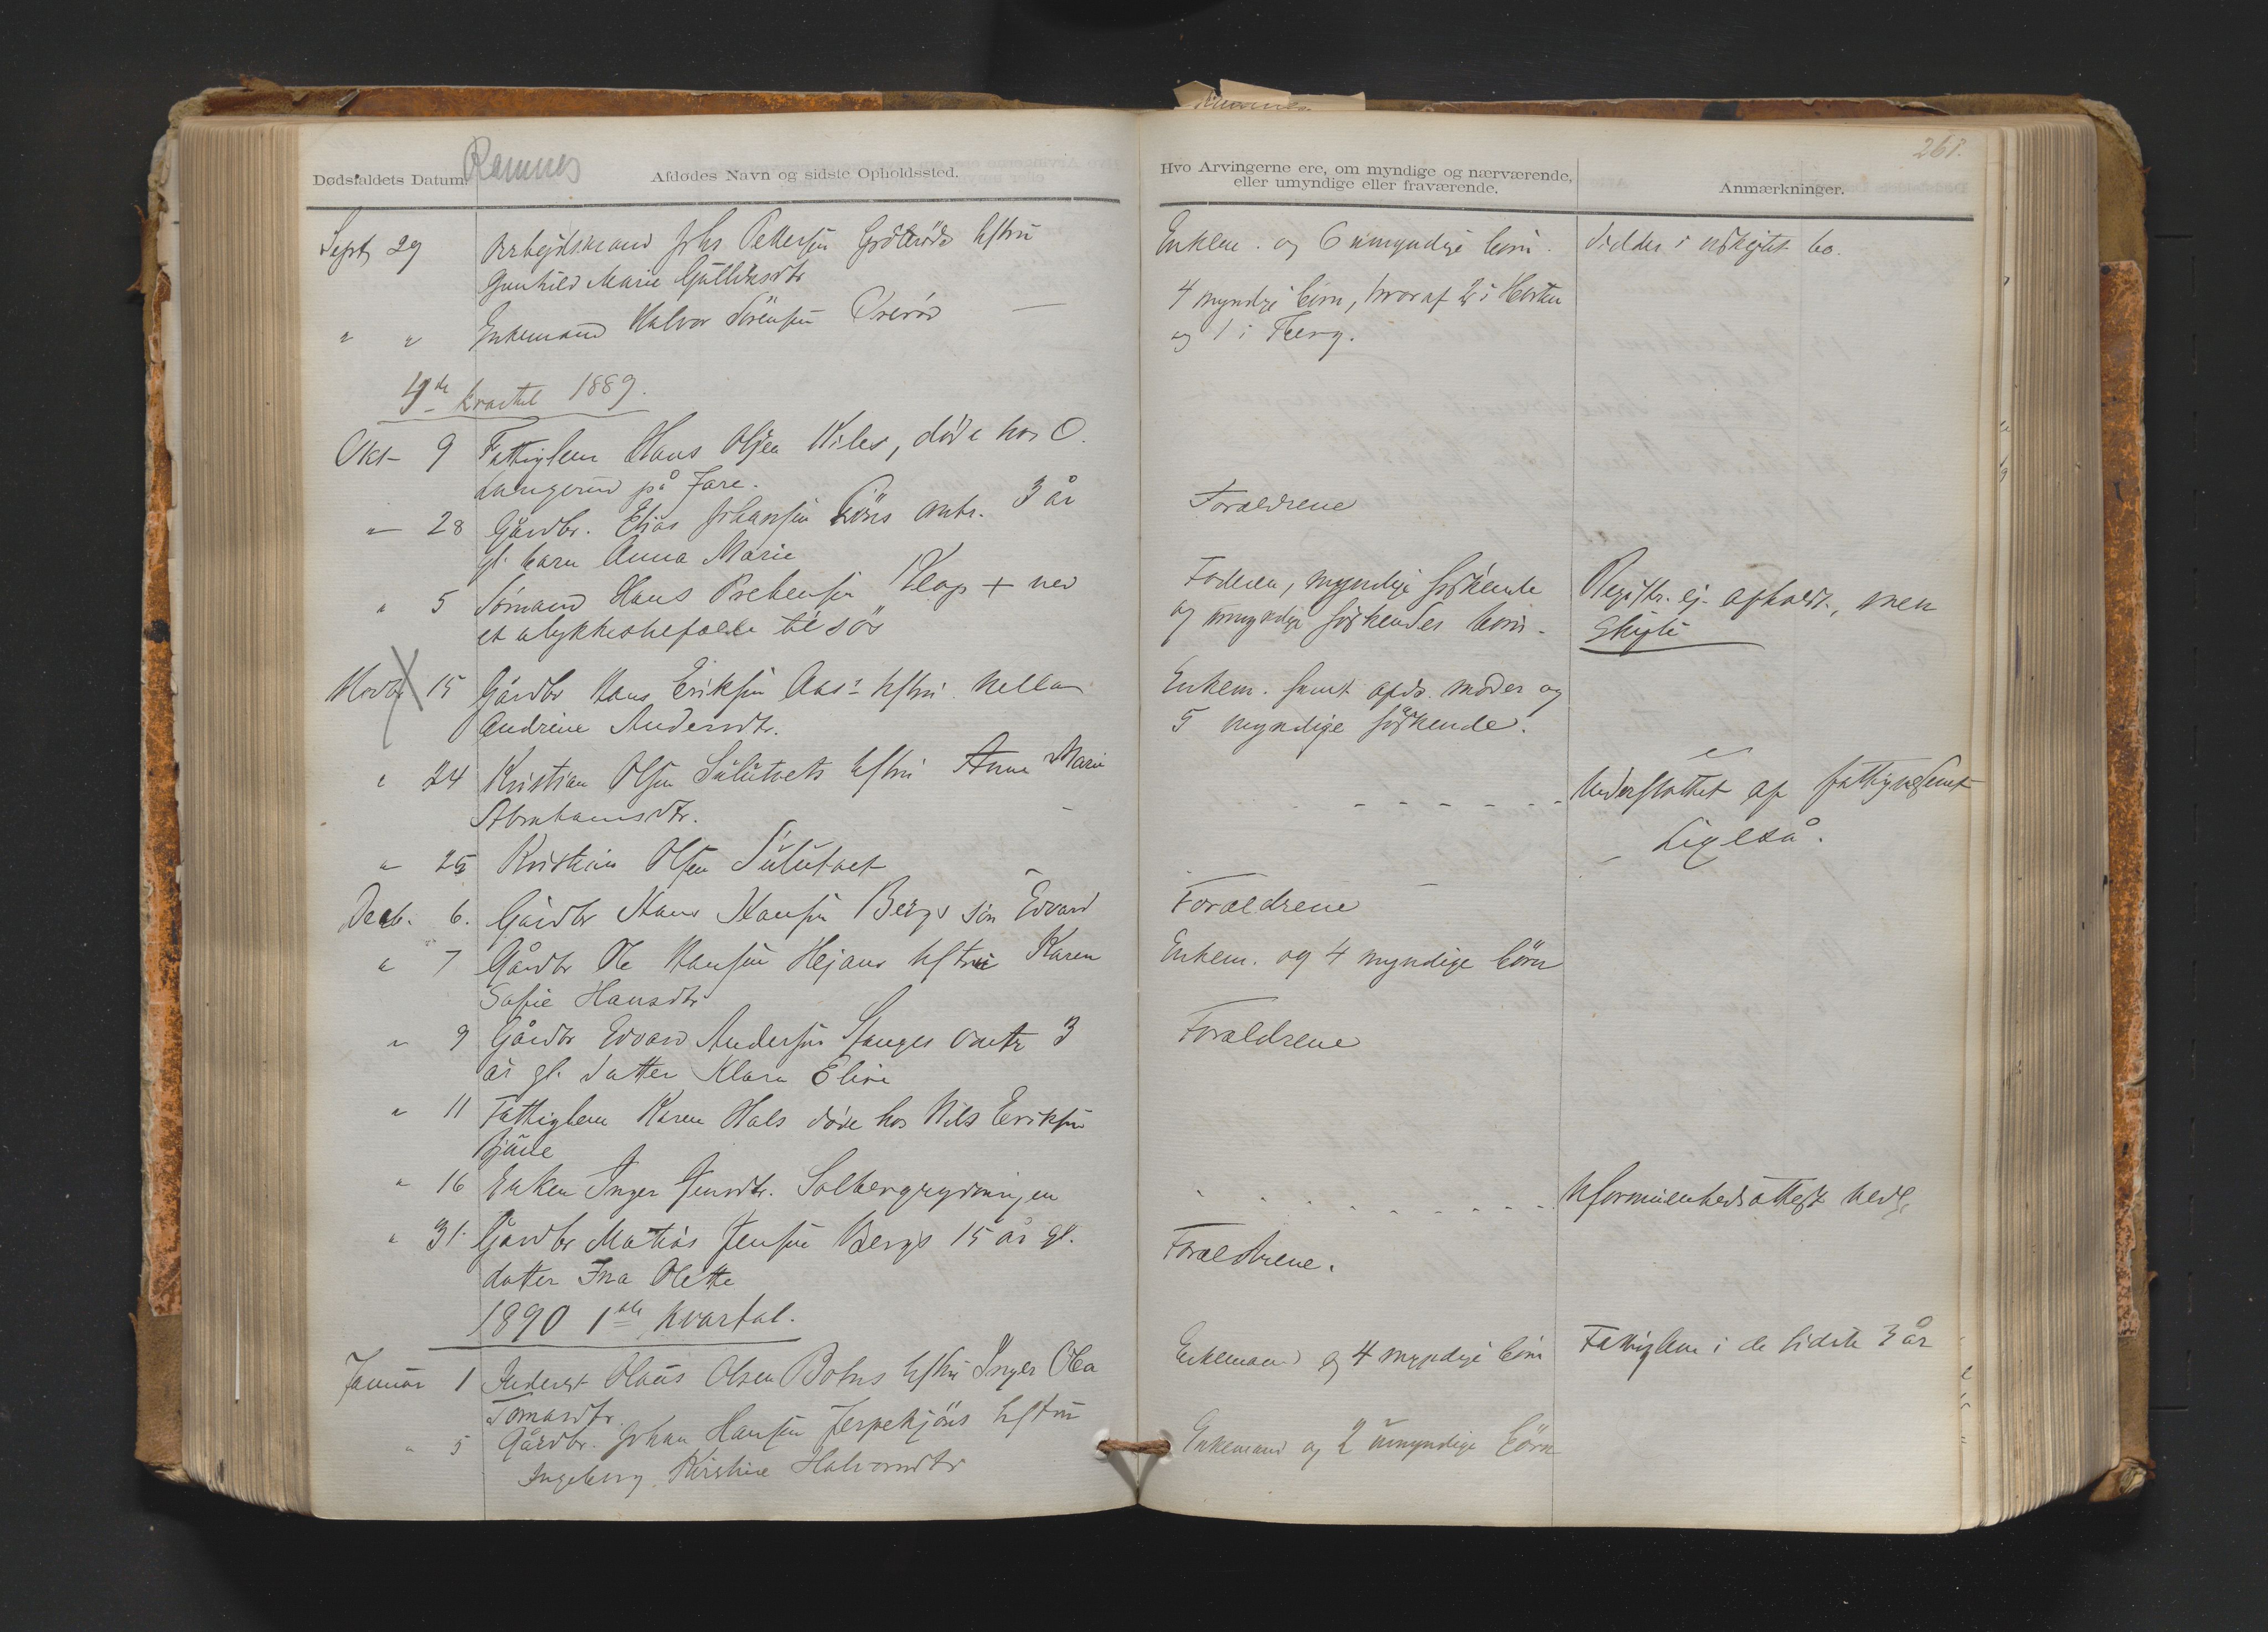 Ramnes
261.
Dødsfaldets Datum.
Afdødes Navn og sidste Opholdssted.
Hvo Arvingerne ere, om myndige og nærværende,
eller umyndige eller fraværende.
Anmærkninger.
Sept 29 Arbejdsmand Johs Pettersen hstru
Gunhild Marie
Enkem. og 6 umyndige børn. Sidder i uskiftet bo.
" " Enkemand Halvor Sørensen —
4 myndige børn, hvoraf 2 i Horten
og 1 i
4de kvartal 1889.
Okt 9 Fattiglem Hans Olsen Hiles, døde hos O.
Langerud på Jare.
" 28 Gårdbr. Elias Johansen Liöns 3 år
gl. barn Anna Marie
Forældrene
" 5 Sømand Hans Prebensen Klop + ved
et ulykkestilfælde til søs
Faderen, myndige søskende
og umyndige søskendes børn.
Registr. ej afholdt, men
Skifte
Novbr 15 Gårdbr Hans Eriksen Aas's hstru Hella
Andrine Andersdtr.
Enkem. samt afds. moder og
5 myndige søskende.
" 24 Kristian Olsen Sulutvets hstru Anne Marie
Abrahamsdtr.
Understøttet af fattigvæsenet
" 25 Kristian Olsen Sulutvet
Ligeså.
Decb. 6. Gårdbr Hans Hansen Bergs søn Edvard
Forældrene
" 7 Gårdbr Ole Hansen Hejans hstru Karen
Sofie Hansdtr
Enkem. og 4 myndige børn
" 9 Gårdbr Edvard Andersen Stanges 3
år gl. datter Klara Eline
Forældrene
" 11 Fattiglem Karen Hals døde hos Nils Eriksen
" 16 Enken Inger Jensdtr. Solbergrydningen
Uformuenhedsattest vedl.
" 31. Gårdbr Matias Jensen Bergs 15 år gl.
datter Ina Olette
Forældrene.
1890 1ste kvartal.
Januar 1 Inderst Olaus Olsen Bohus hstru Inger Olea
Tomasdtr.
Enkemand og 4 myndige børn Fattiglem i de sidste 3 år
" 5 Gårdbr. Johan Hansen Jerpekjøns hstru
Ingeborg Kirstine Halvorsdtr
Enkemand og 2 umyndige børn